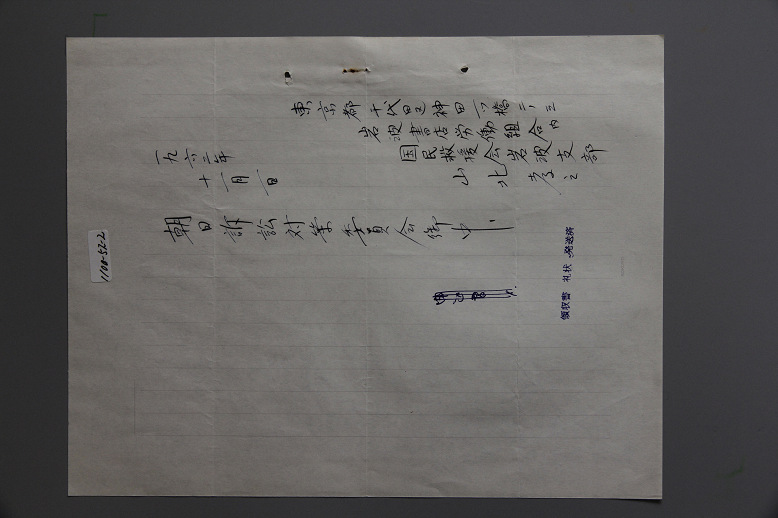 東京都千代田区神田一ツ橋二ノ三
岩波書店労働組合内
国民救援会岩波支部
山北孝之
一九六三年
十一月一日
朝日訴訟対策委員会御中
領収書 礼状 発送済
1100-52-2